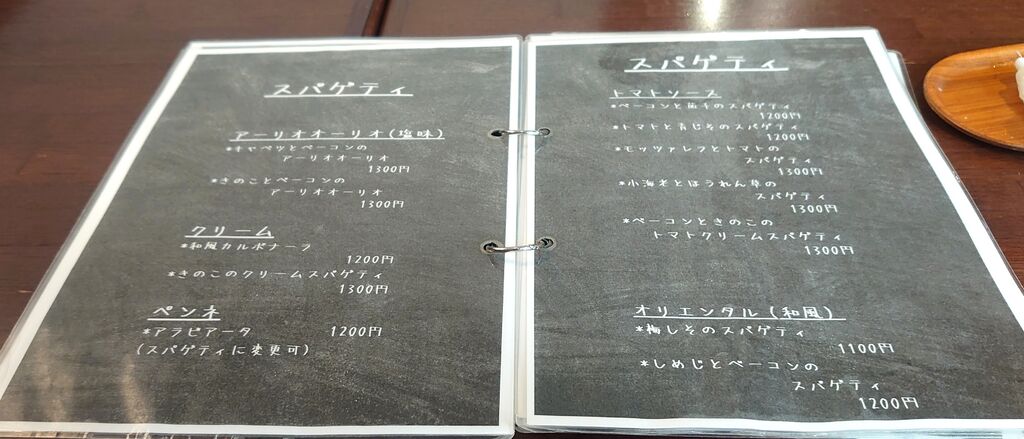 スパゲティ
アーリオオーリオ(塩味)
*キャベツとベーコンの
アーリオオーリオ
1300円
*きのことベーコンの
アーリオオーリオ
1300円
クリーム
*和風カルボナーラ
1200円
*きのこのクリームスパゲティ
1300円
ペンネ
*アラビアータ 1200円
(スパゲティに変更可)
スパゲティ
トマトソース
*ベーコンと茄子のスパゲティ
1200円
*トマトと青じそのスパゲティ
1200円
*モッツァレラとトマトの
スパゲティ
1300円
*小海老とほうれん草の
スパゲティ
1300円
*ベーコンときのこの
トマトクリームスパゲティ
1300円
オリエンタル(和風)
*梅しそのスパゲティ
1100円
*しめじとベーコンの
スパゲティ
1200円